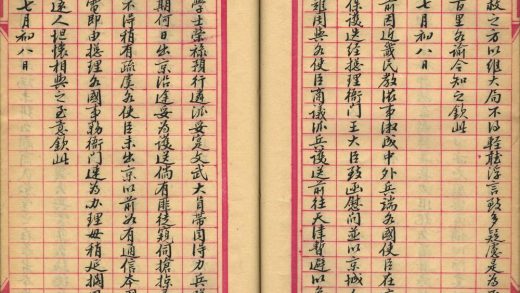 之方以維大局不得輕聽浮言致多疑慮是為至
百里各諭令知之欽此
七月初八日
前因近畿民教滋事激成中外兵端各國使臣在京
係護迭經總理衙門王大臣致函慰問並以京城人
雜周與各使臣商議派兵護送前往天津暫避以免
學士榮祿預行遴派妥實文武大員帶同得力兵隊
期何日出京沿途妥為護送倘有匪徒窺伺搶掠
不得稍有疏虞各使臣未出京以前如有通信本國
當即由總理各國事務衙門速為辦理毋稍延擱
遠人坦懷相與之至意欽此
七月初八日